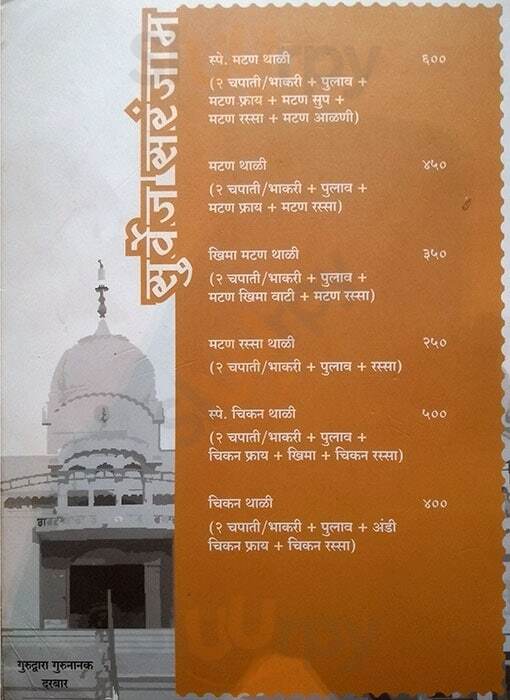 सुर्वेज सरंजाम
स्पे. मटण थाळी ६००
(२ चपाती/भाकरी + पुलाव +
मटण फ्राय + मटण सुप +
मटण रस्सा + मटण आळणी)
मटण थाळी ४५०
(२ चपाती/भाकरी + पुलाव +
मटण फ्राय + मटण रस्सा)
खिमा मटण थाळी ३५०
(२ चपाती/भाकरी + पुलाव +
मटण खिमा वाटी + मटण रस्सा)
मटण रस्सा थाळी २५०
(२ चपाती/भाकरी + पुलाव + रस्सा)
स्पे. चिकन थाळी ५००
(२ चपाती/भाकरी + पुलाव +
चिकन फ्राय + खिमा + चिकन रस्सा)
चिकन थाळी ४००
(२ चपाती/भाकरी + पुलाव + अंडी
चिकन फ्राय + चिकन रस्सा)
गुरुद्वारा गुरुनानक
दरबार